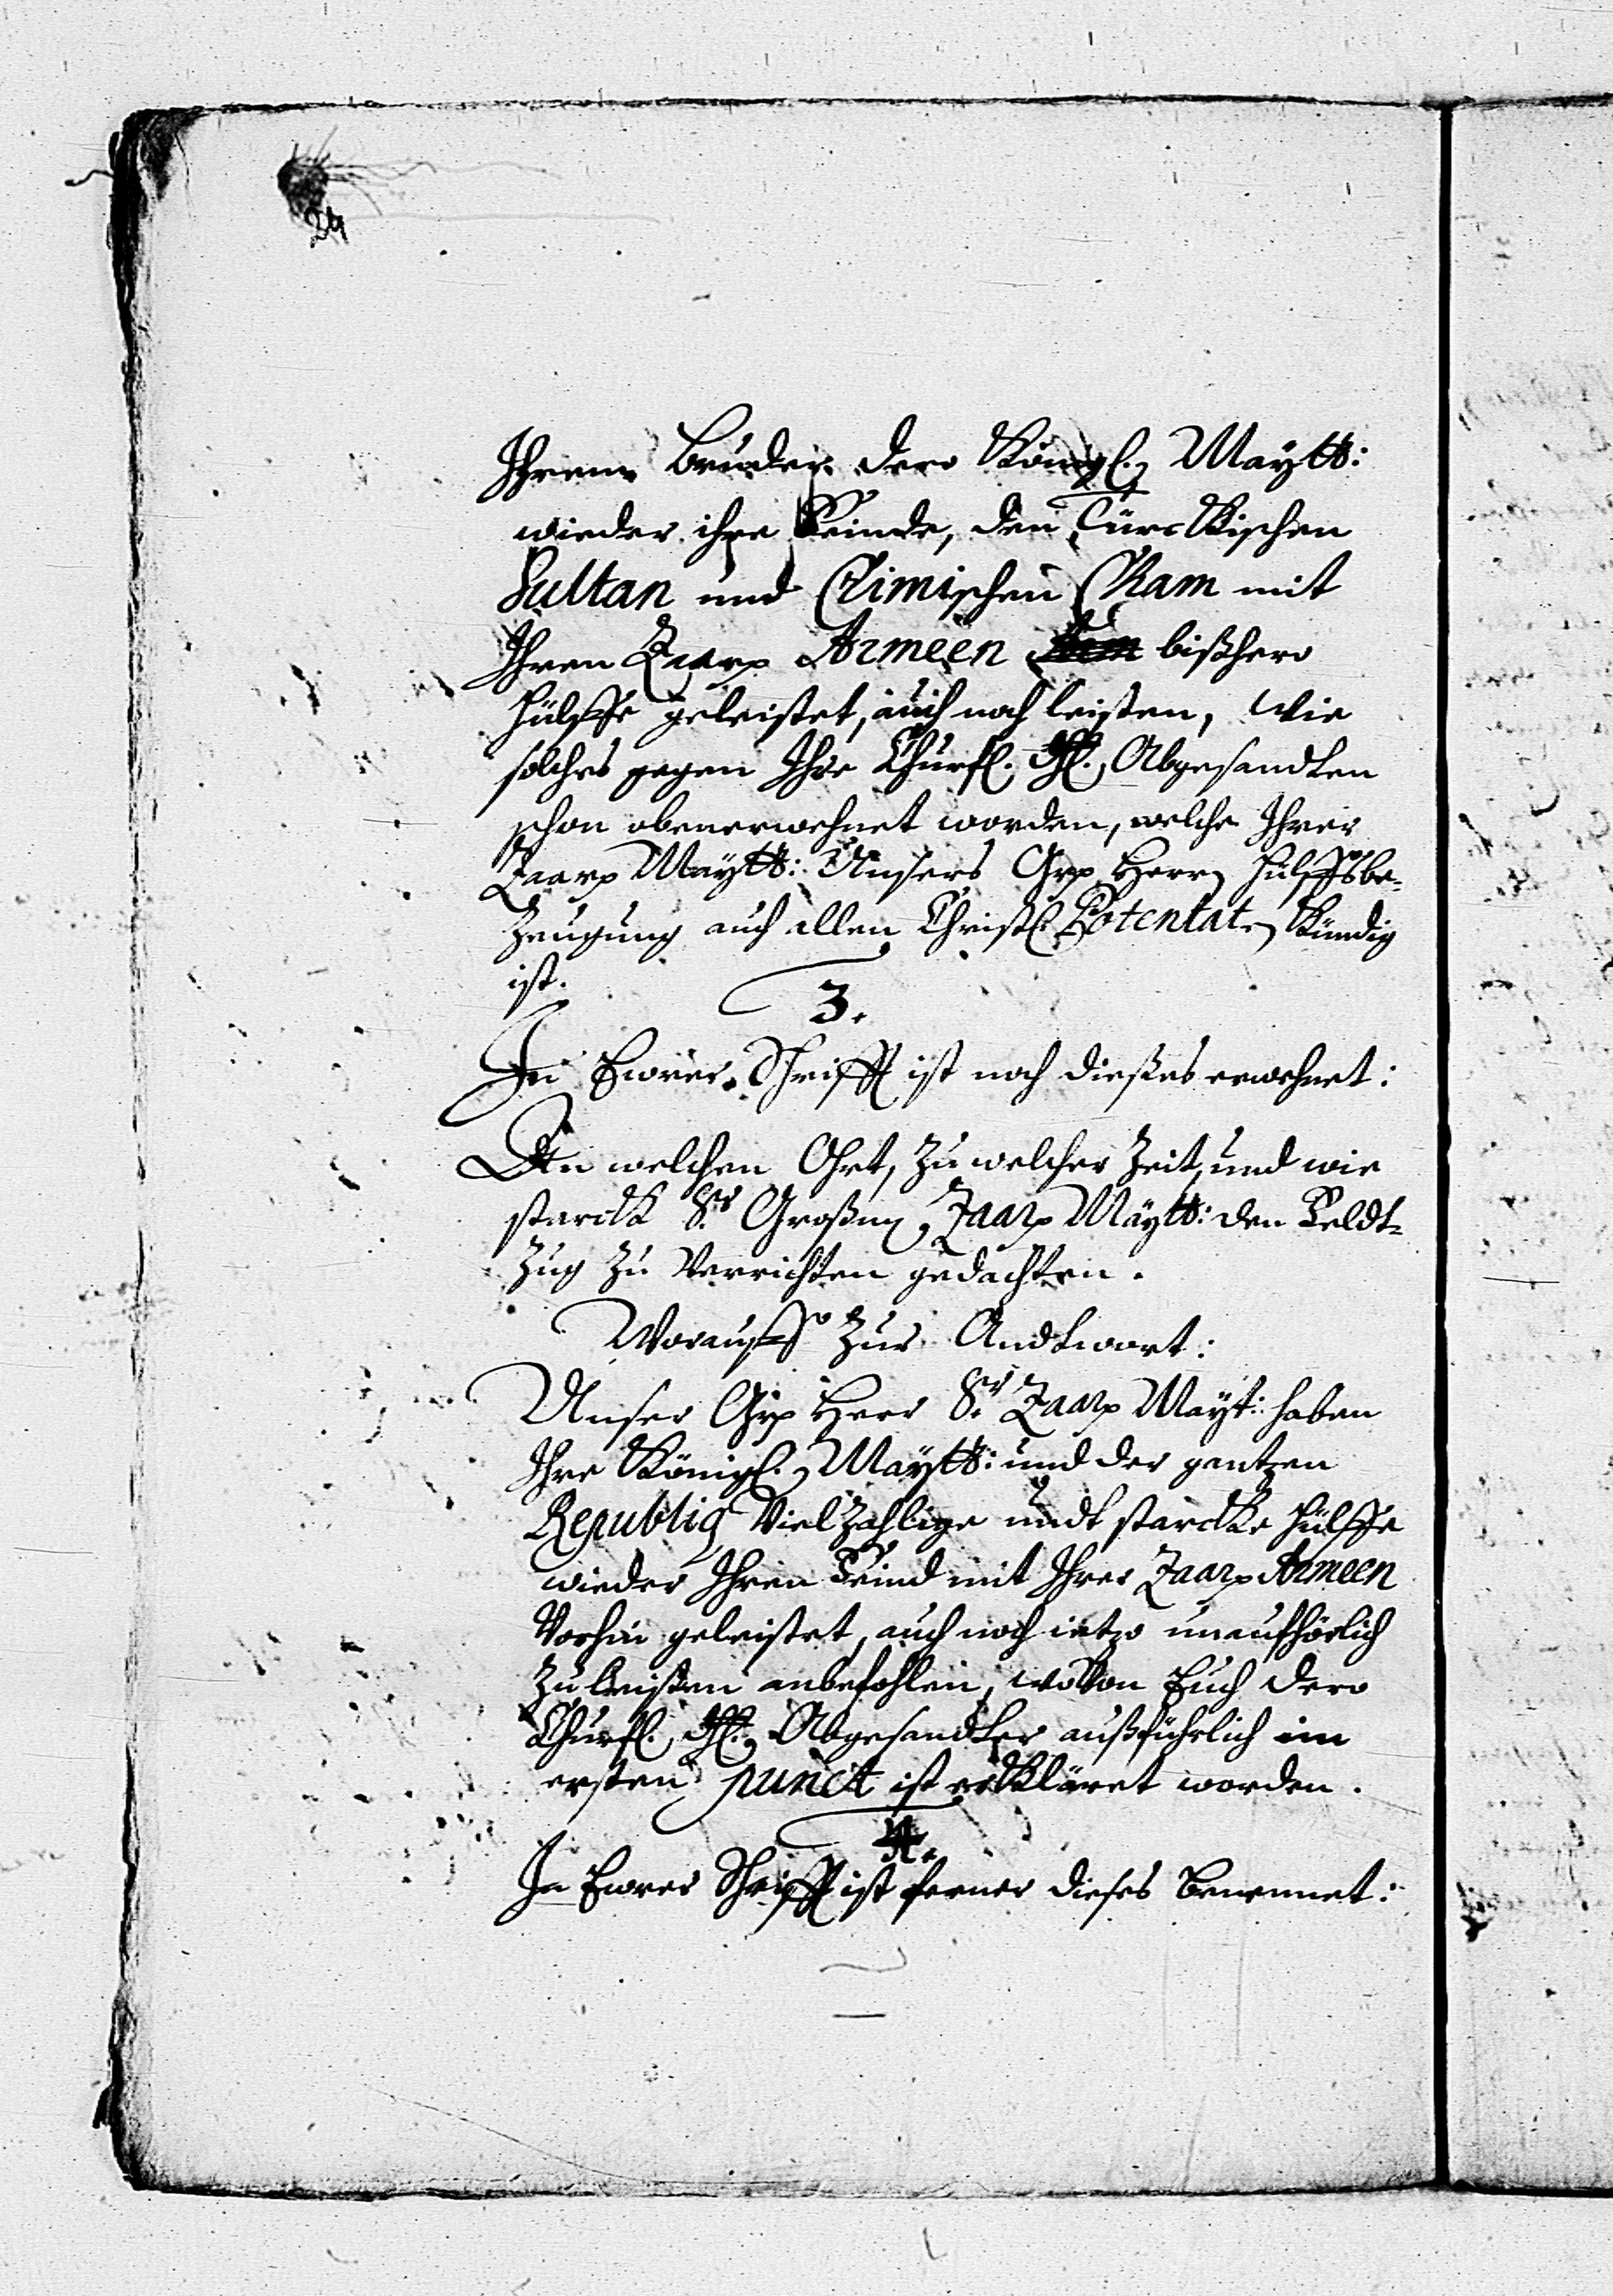 Ihrem Bruder dero Königl. Maytt:
wieder ihre Feinde, den Türckischen
Sultan und Crimischen Cham mit
Ihren Zaarn Armeen bißhero
hülffe geleistet, auch noch leisten, wie
solches gegen Ihre Churfl. Dhl. Abgesandten
schon obenerwehnet worden, welche Ihrer
Zaarn Maytt: Unsers Grn Herrn hülffsbe-
zeugung auch allen Christl. Potentaten kündig
ist.
3.
In Ewrer Schrifft ist noch dießes erwehnet:
An welchen Ohrt, zu welcher Zeit, und wie
starck Sr. Großen Zaarn Maytt: den Feldt-
zug zu verrichten gedachten.
Worauff zur Andtwort:
Unser Grn Herr Sr. Zaarn Mayt: haben
Ihre Königl. Maytt: und der gantzen
Republiq vielzahlige undt starcke hülffe
wieder Ihren Feind mit Ihrer Zaarn Armeen
vorhin geleistet, auch noch ietzo unaufhörlich
zu leisten anbefohlen, wovon Euch dero
Churfl. Dhl. Abgesandter außführlich im
ersten punct ist erkläret worden.
4.
In Ewrer Schrifft ist ferner dieses benennet: